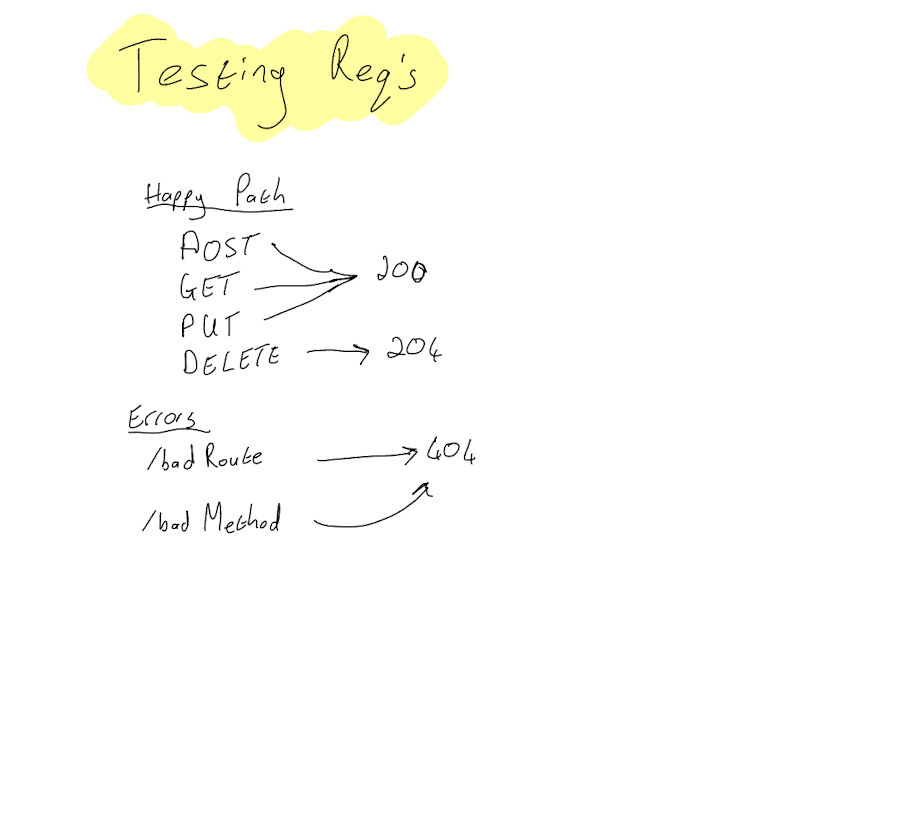 Testing Req's
Happy Path
POST
GET
PUT
200
DELETE → 204
Errors
/bad Route → 404
/bad Method